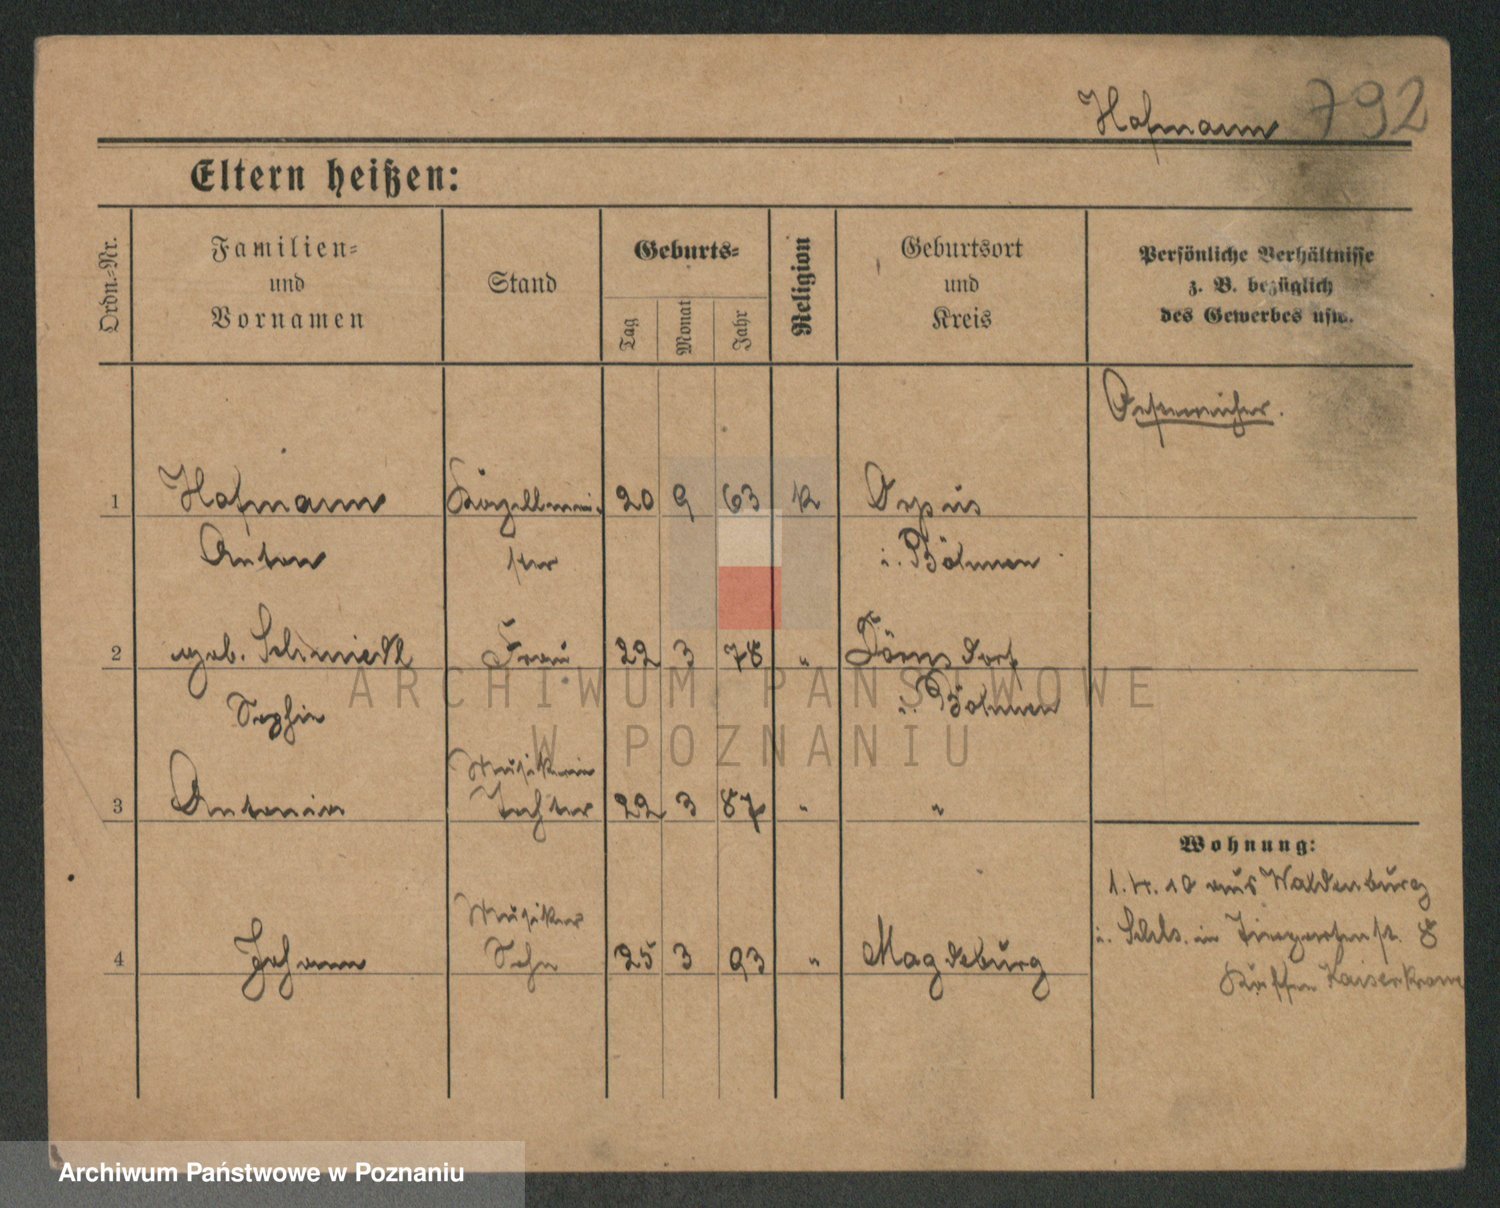 Hofmann 792
Eltern heißen:
Ordn.-Nr.
Familien- und Vornamen
Stand
Geburts-
Tag
Monat
Jahr
Religion
Geburtsort und Kreis
Persönliche Verhältnisse
z. B. bezüglich
des Gewerbes usw.
Oesterreicher.
1 Hofmann Kapellmei- 20 9 63 k
Anton ster i. Böhmen
2 geb. Frau 22 3 78 "
Sophie i. Böhmen
Musikerin
3 Antonie Tochter 22 3 87 " "
Wohnung:
1. 4. 10 aus Waldenburg
Musiker i. Schls. in Tiergartenstr. 8
4 Johann Sohn 25 3 93 " Magdeburg
Kaiserkrone
ARCHIWUM PAŃSTWOWE
W POZNANIU
Archiwum Państwowe w Poznaniu